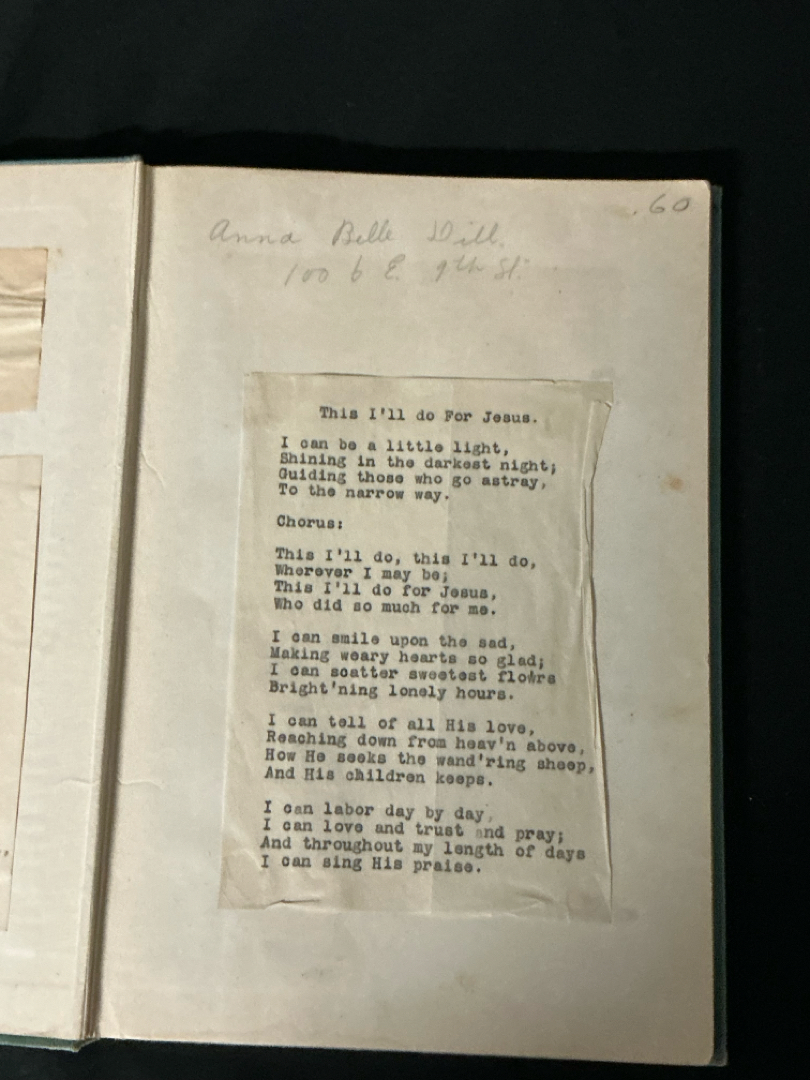 .60
Anna Belle Dill.
1006 E. 9th St.
This I'll do For Jesus.
I can be a little light,
Shining in the darkest night;
Guiding those who go astray,
To the narrow way.
Chorus:
This I'll do, this I'll do,
Wherever I may be;
This I'll do for Jesus,
Who did so much for me.
I can smile upon the sad,
Making weary hearts so glad;
I can scatter sweetest flowrs
Bright'ning lonely hours.
I can tell of all His love,
Reaching down from heav'n above,
How He seeks the wand'ring sheep,
And His children keeps.
I can labor day by day,
I can love and trust and pray;
And throughout my length of days
I can sing His praise.